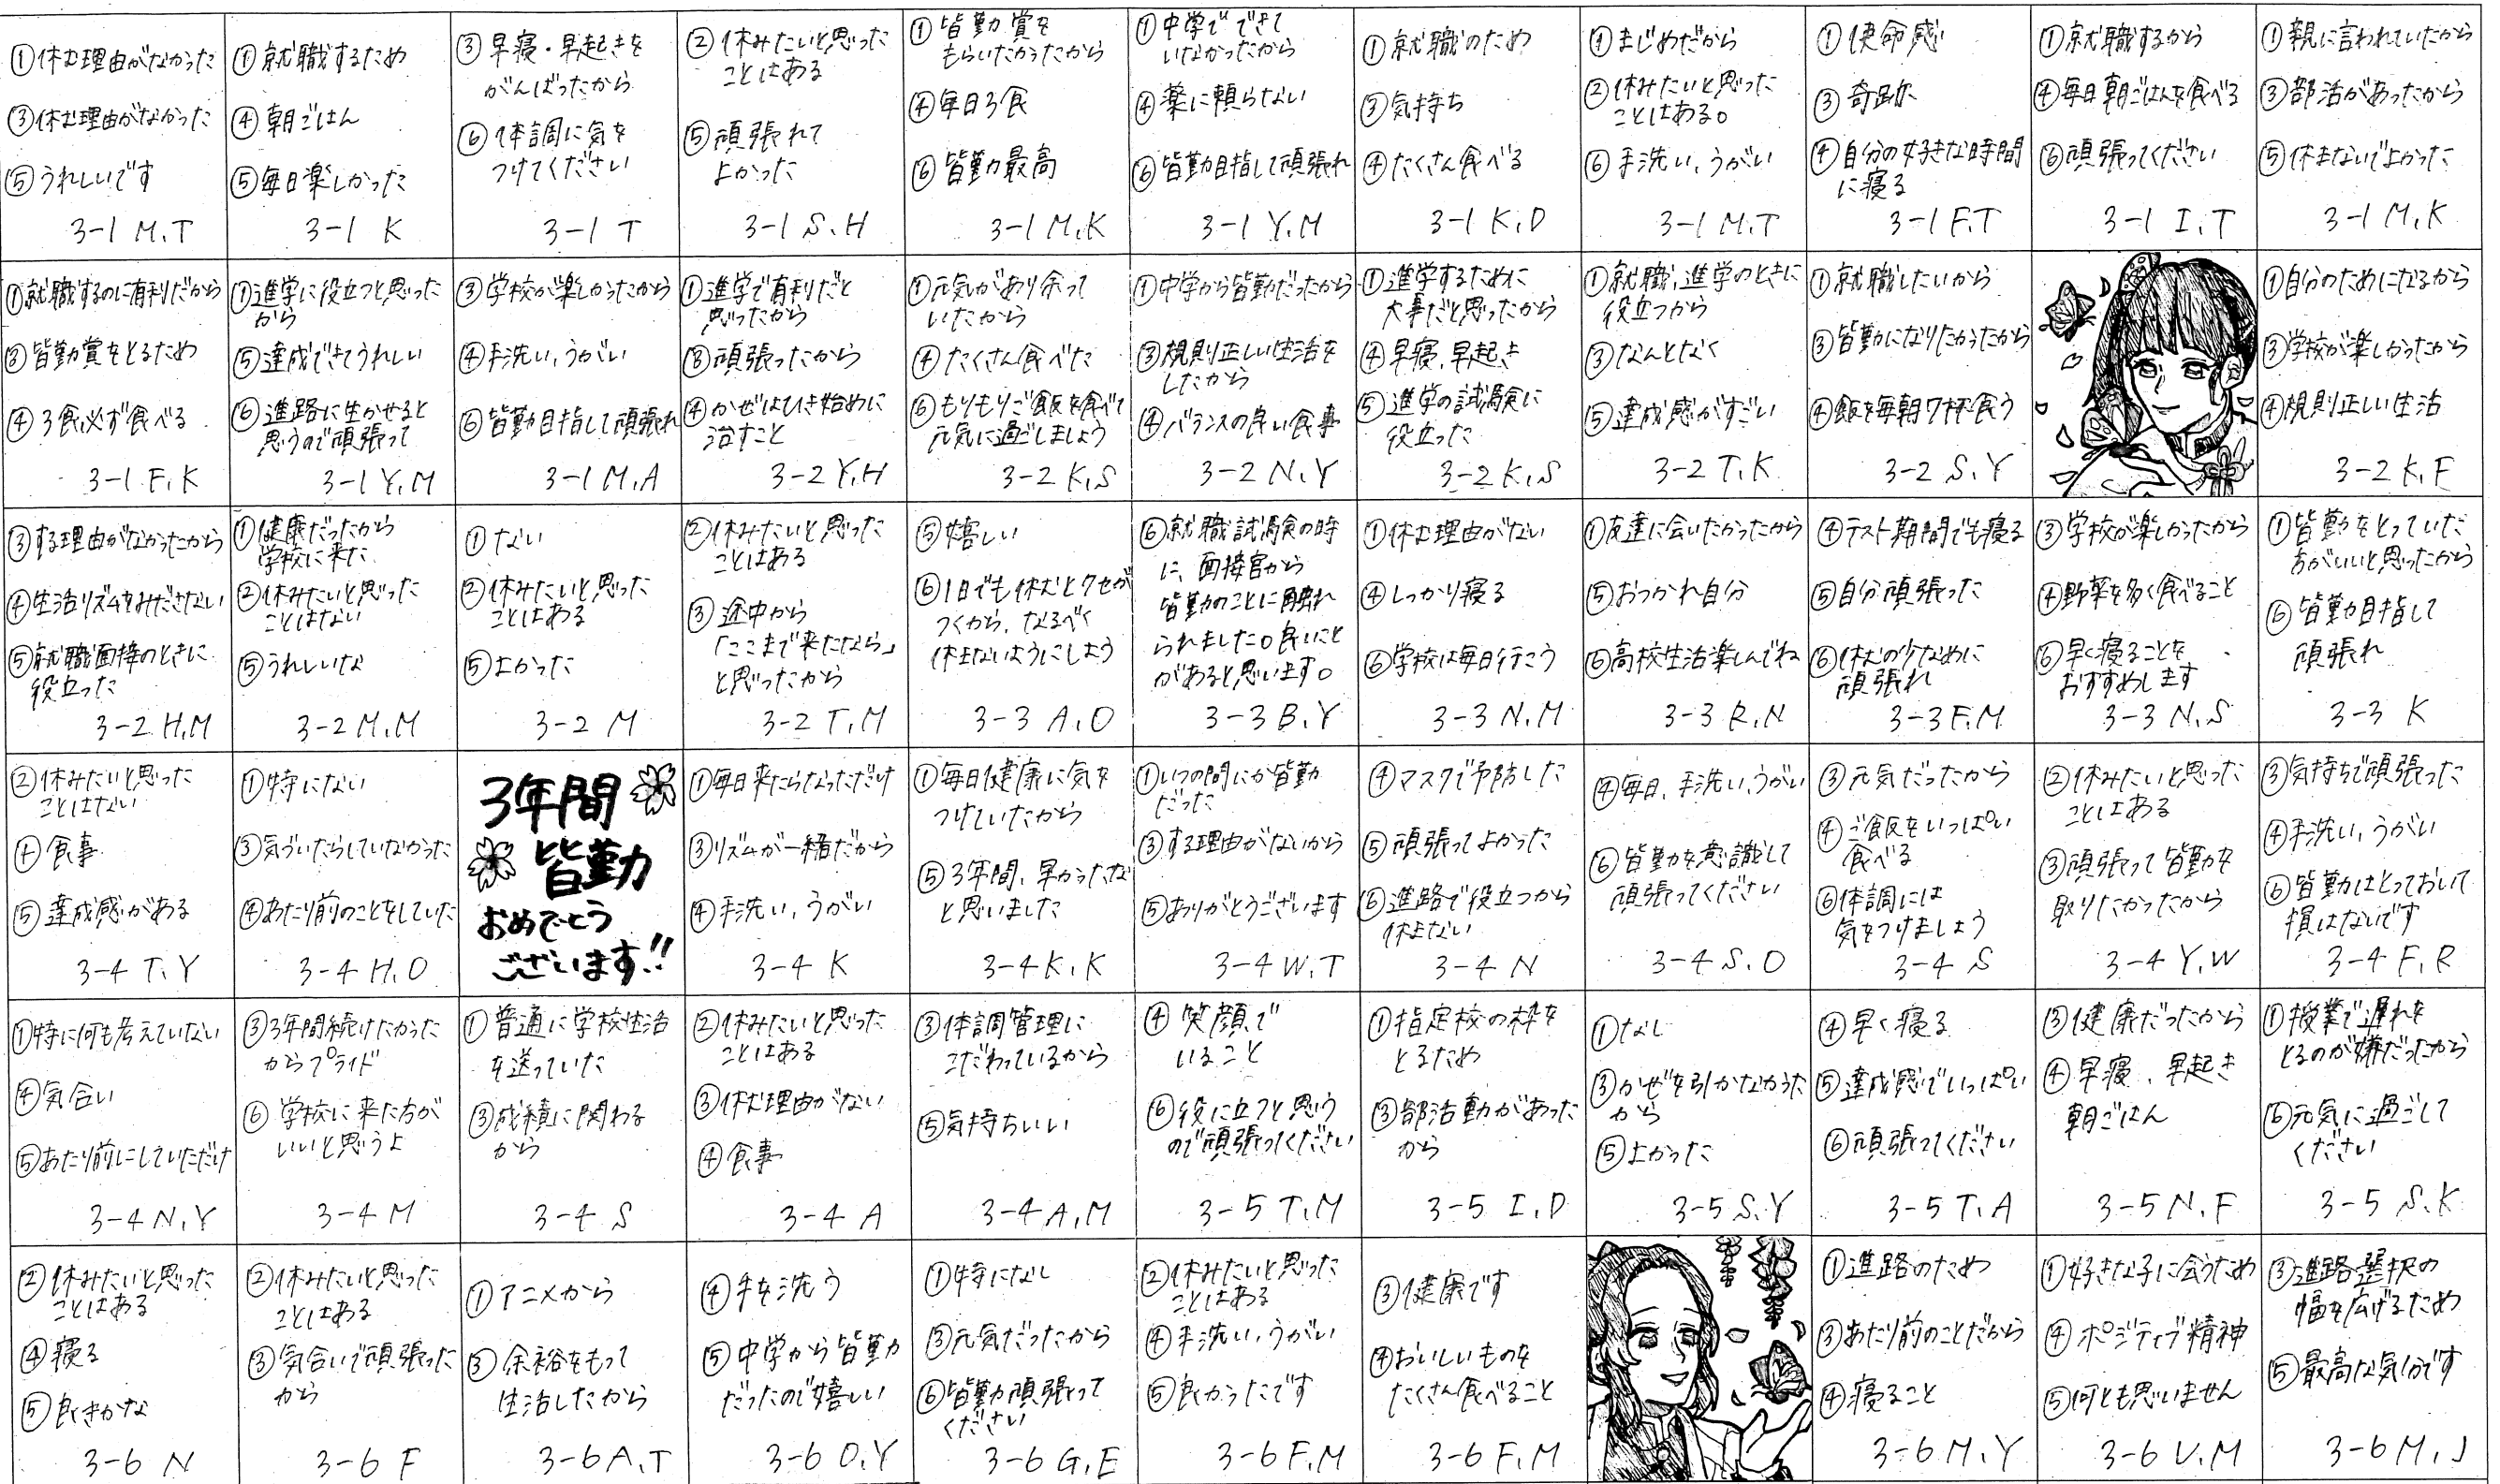 ①休む理由がなかった
③休む理由がなかった
⑤うれしいです
3-1 M.T
①就職するため
④朝ごはん
⑤毎日楽しかった
3-1 K
③早寝・早起きを
がんばったから
⑥体調に気を
つけてください
3-1 T
②休みたいと思った
ことはある
⑤頑張れて
よかった
3-1 S.H
①皆勤賞を
もらいたかったから
④毎日3食
⑥皆勤最高
3-1 M.K
①中学でできて
いなかったから
④薬に頼らない
⑥皆勤目指して頑張れ
3-1 Y.M
①就職のため
③気持ち
④たくさん食べる
3-1 K.D
①まじめだから
②休みたいと思った
ことはある。
⑥手洗い,うがい
3-1 M.T
①使命感
③奇跡
④自分の好きな時間
に寝る
3-1 F.T
①就職するから
④毎日朝ごはんを食べる
⑥頑張ってください
3-1 I.T
①親に言われていたから
③部活があったから
⑤休まないでよかった
3-1 M.K
①就職するのに有利だから
③皆勤賞をとるため
④3食必ず食べる
3-1 F.K
①進学に役立つと思った
から
⑤達成できてうれしい
⑥進路に生かせると
思うので頑張って
3-1 Y.M
③学校が楽しかったから
④手洗い,うがい
⑥皆勤目指して頑張れ
3-1 M.A
①進学で有利だと
思ったから
③頑張ったから
④かぜはひき始めに
治すこと
3-2 Y.H
①元気があり余って
いたから
④たくさん食べた
⑥もりもりご飯を食べて
元気に過ごしましょう
3-2 K.S
①中学から皆勤だったから
③規則正しい生活を
したから
④バランスの良い食事
3-2 N.Y
①進学するために
大事だと思ったから
④早寝,早起き
⑤進学の試験に
役立った
3-2 K.S
①就職,進学のときに
役立つから
③なんとなく
⑤達成感がすごい
3-2 T.K
①就職したいから
③皆勤になりたかったから
④飯を毎朝7杯食う
3-2 S.Y
①自分のためになるから
③学校が楽しかったから
④規則正しい生活
3-2 K.F
③する理由がなかったから
④生活リズムをみださない
⑤就職面接のときに
役立った
3-2 H.M
①健康だったから
学校に来た
②休みたいと思った
ことはない
⑤うれしいな
3-2 M.M
①ない
②休みたいと思った
ことはある
⑤よかった
3-2 M
②休みたいと思った
ことはある
③途中から
「ここまで来たなら」
と思ったから
3-2 T.M
⑤嬉しい
⑥1日でも休むとクセが
つくから,なるべく
休まないようにしよう
3-3 A.O
⑥就職試験の時
に、面接官から
皆勤のことに触れ
られました。良いこと
があると思います。
3-3 B.Y
①休む理由がない
④しっかり寝る
⑥学校は毎日行こう
3-3 N.M
①友達に会いたかったから
⑤おつかれ自分
⑥高校生活楽しんでね
3-3 R.N
④テスト期間でも寝る
⑤自分頑張った
⑥休むの少なめに
頑張れ
3-3 F.M
③学校が楽しかったから
④野菜を多く食べること
⑥早く寝ることを
おすすめします
3-3 N.S
①皆勤をとっていた
方がいいと思ったから
⑥皆勤目指して
頑張れ
3-3 K
②休みたいと思った
ことはない
④食事
⑤達成感がある
3-4 T.Y
①特にない
③気づいたらしていなかった
④あたり前のことをしていた
3-4 H.O
3年間
皆勤
おめでとう
ございます!!
①毎日来たらなっただけ
③リズムが一緒だから
④手洗い,うがい
3-4 K
①毎日健康に気を
つけていたから
⑤3年間,早かったな
と思いました
3-4 K.K
①いつの間にか皆勤
だった
③する理由がないから
⑤ありがとうございます
3-4 W.T
④マスクで予防した
⑤頑張ってよかった
⑥進路で役立つから
休まない
3-4 N
④毎日,手洗い,うがい
⑥皆勤を意識して
頑張ってください
3-4 S.O
③元気だったから
④ご飯をいっぱい
食べる
⑥体調には
気をつけましょう
3-4 S
②休みたいと思った
ことはある
③頑張って皆勤を
取りたかったから
3-4 Y.W
③気持ちで頑張った
④手洗い,うがい
⑥皆勤はとっておいて
損はないです
3-4 F.R
①特に何も考えていない
④気合い
⑤あたり前にしていただけ
3-4 N.Y
③3年間続けたかった
からプライド
⑥学校に来た方が
いいと思うよ
3-4 M
①普通に学校生活
を送っていた
③成績に関わる
から
3-4 S
②休みたいと思った
ことはある
③休む理由がない
④食事
3-4 A
③体調管理に
こだわっているから
⑤気持ちいい
3-4 A.M
④笑顔で
いること
⑥役に立つと思う
ので頑張ってください
3-5 T.M
①指定校の枠を
とるため
③部活動があった
から
3-5 I.D
①なし
③かぜを引かなかった
から
⑤よかった
3-5 S.Y
④早く寝る
⑤達成感でいっぱい
⑥頑張ってください
3-5 T.A
③健康だったから
④早寝、早起き
朝ごはん
3-5 N.F
①授業で遅れを
とるのが嫌だったから
⑥元気に過ごして
ください
3-5 S.K
②休みたいと思った
ことはある
④寝る
⑤良きかな
3-6 N
②休みたいと思った
ことはある
③気合いで頑張った
から
3-6 F
①アニメから
③余裕をもって
生活したから
3-6 A.T
④手を洗う
⑤中学から皆勤
だったので嬉しい
3-6 O.Y
①特になし
③元気だったから
⑥皆勤頑張って
ください
3-6 G.E
②休みたいと思った
ことはある
④手洗い,うがい
⑤良かったです
3-6 F.M
③健康です
④おいしいものを
たくさん食べること
3-6 F.M
①進路のため
③あたり前のことだから
④寝ること
3-6 M.Y
①好きな子に会うため
④ポジティブ精神
⑤何とも思いません
3-6 U.M
③進路選択の
幅を広げるため
⑤最高な気分です
3-6 M.J